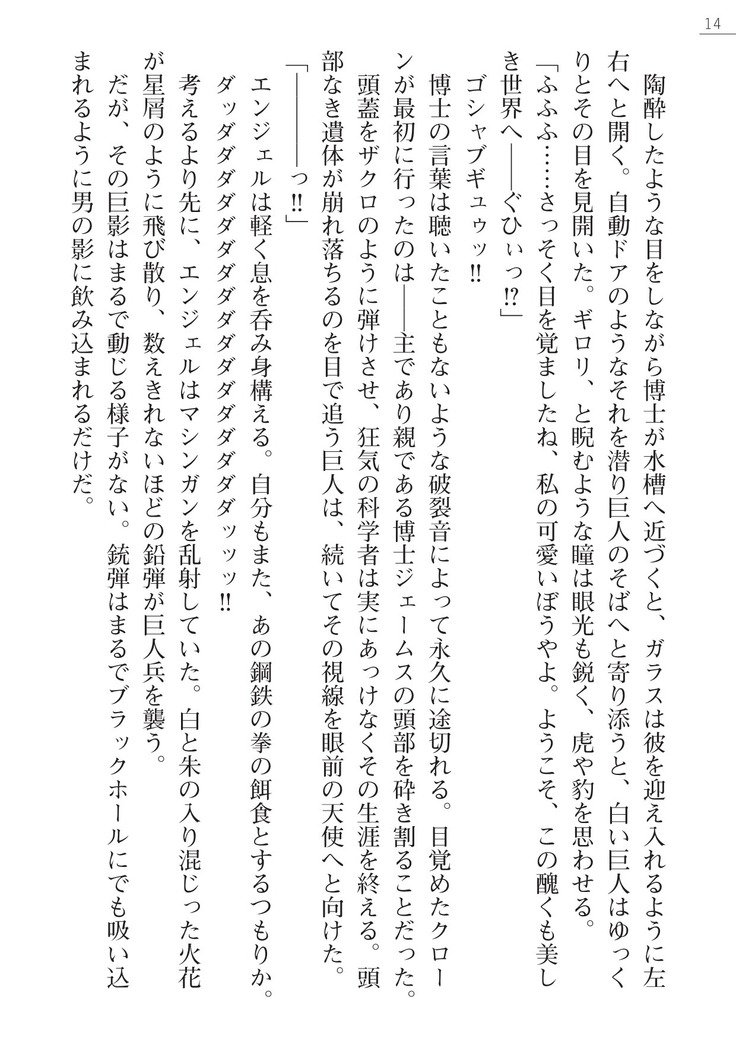 14
陶酔したような目をしながら博士が水槽へ近づくと、ガラスは彼を迎え入れるように左
右へと開く。自動ドアのようなそれを潜り巨人のそばへと寄り添うと、白い巨人はゆっく
りとその目を見開いた。ギロリ、と睨むような瞳は眼光も鋭く、虎や豹を思わせる。
「ふふふ……さっそく目を覚ましたね、私の可愛いぼうやよ。ようこそ、この醜くも美し
き世界へ――ぐひぃっ!?」
ゴシャブギュゥッ!!
博士の言葉は聴いたこともないような破裂音によって永久に途切れる。目覚めたクロー
ンが最初に行ったのは――主であり親である博士ジェームスの頭部を砕き割ることだった。
頭蓋をザクロのように弾けさせ、狂気の科学者は実にあっけなくその生涯を終える。頭
部なき遺体が崩れ落ちるのを目で追う巨人は、続いてその視線を眼前の天使へと向けた。
「――――っ!!」
エンジェルは軽く息を呑み身構える。自分もまた、あの鋼鉄の拳の餌食とするつもりか。
ダッダダダダダダダダダダダダダダダダッッッ!!
考えるより先に、エンジェルはマシンガンを乱射していた。白と朱の入り混じった火花
が星屑のように飛び散り、数えきれないほどの鉛弾が巨人兵を襲う。
だが、その巨影はまるで動じる様子がない。銃弾はまるでブラックホールにでも吸い込
まれるように男の影に飲み込まれるだけだ。